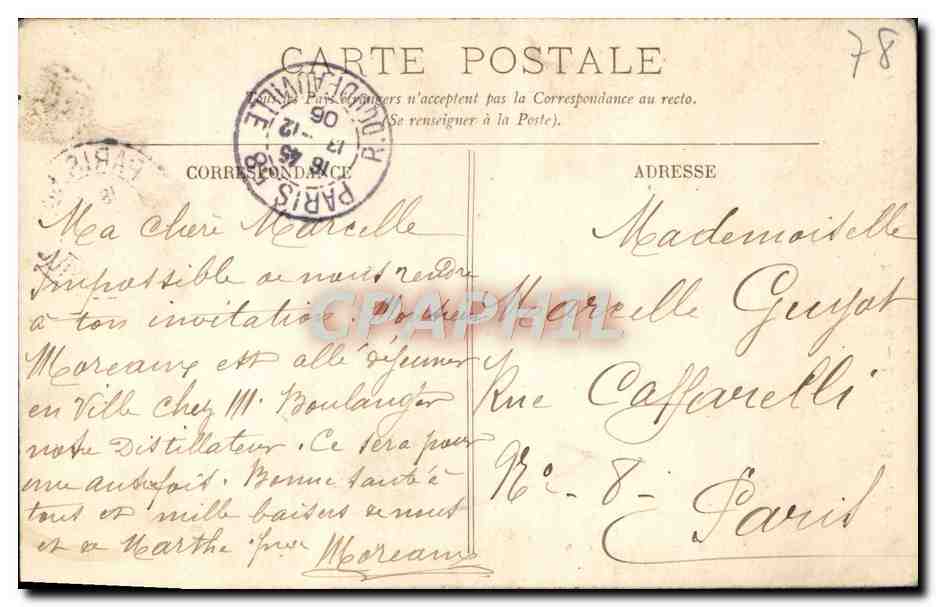 78
CARTE POSTALE
Tous les Pays étrangers n'acceptent pas la Correspondance au recto.
(Se renseigner à la Poste).
CORRESPONDANCE
ADRESSE
PARIS 58
R. DUDEAUVILLE
16 45
17 -12
06
PARIS
Ma chère Marcelle
Impossible de nous rendre
à ton invitation.
Moreaux est allé déjeuner
en Ville chez M. Boulanger
notre Distillateur. Ce sera pour
une autrefois. Bonne santé à
tous et mille baisers de nous
et de Marthe
Moreaux
Mademoiselle
Marcelle Guyot
Rue Caffarelli
No - 8 -
Paris
CPAPHIL